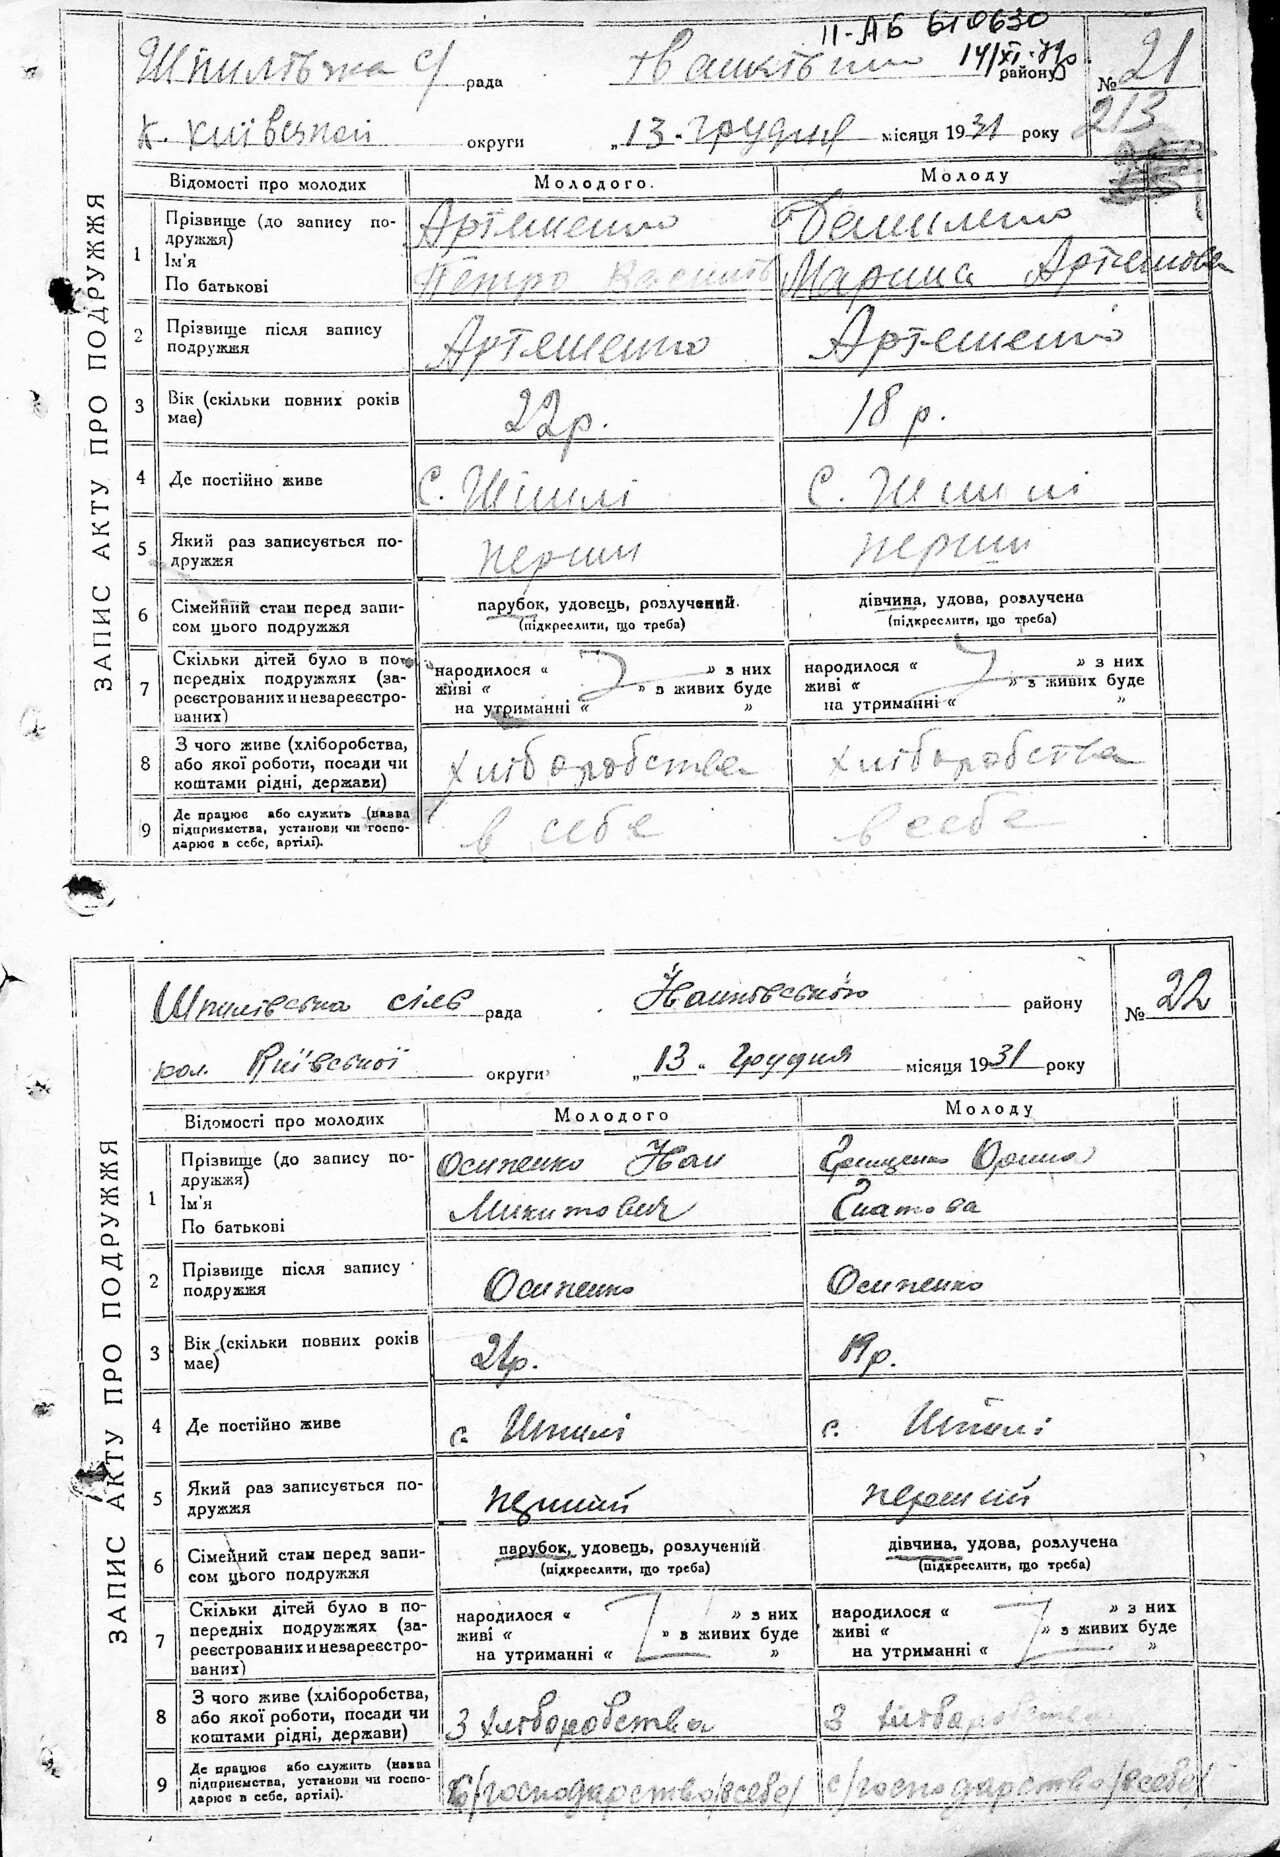 II-АБ 610630
14/XI-
Шпилівська с/ рада Іванківськ району № 21
к. Київської округи „13" грудня місяця 1931 року 213
ЗАПИС АКТУ ПРО ПОДРУЖЖЯ
Відомості про молодих Молодого. Молоду
1 Прізвище (до запису по- Артеменко Даниленко
дружжя)
Ім'я Петро Василів Марина Артемова
По батькові
2 Прізвище після запису Артеменко Артеменко
подружжя
3 Вік (скільки повних років 22 р. 18 р.
має)
4 Де постійно живе С. Шпилі С. Шпилі
5 Який раз записується по- перший перший
дружжя
6 Сімейний стан перед запи- парубок, удовець, розлучений. дівчина, удова, розлучена
сом цього подружжя (підкреслити, що треба) (підкреслити, що треба)
7 Скільки дітей було в по- народилося “ ” з них народилося “ ” з них
передніх подружжях (за- живі “ ” з живих буде живі “ ” з живих буде
реєстрованих и незареєстро- на утриманні “ ” на утриманні “ ”
ваних)
8 З чого живе (хліборобства, хліборобства хліборобства
або якої роботи, посади чи
коштами рідні, держави)
9 Де працює або служить (назва в себе в себе
підприємства, установи чи госпо-
дарює в себе, артілі).
Шпилівська сіль рада Іванківського району № 22
кол. Київської округи „13" грудня місяця 1931 року
ЗАПИС АКТУ ПРО ПОДРУЖЖЯ
Відомості про молодих Молодого Молоду
1 Прізвище (до запису по- Осипенко Іван Грищенко Орина
дружжя)
Ім'я Микитович Гнатова
По батькові
2 Прізвище після запису Осипенко Осипенко
подружжя
3 Вік (скільки повних років 21 р. 19 р.
має)
4 Де постійно живе с. Шпилі с. Шпилі
5 Який раз записується по- перший перший
дружжя
6 Сімейний стан перед запи- парубок, удовець, розлучений дівчина, удова, розлучена
сом цього подружжя (підкреслити, що треба) (підкреслити, що треба)
7 Скільки дітей було в по- народилося “ ” з них народилося “ ” з них
передніх подружжях (за- живі “ ” з живих буде живі “ ” з живих буде
реєстрованих и незареєстро- на утриманні “ ” на утриманні “ ”
ваних)
8 З чого живе (хліборобства, З хліборобства З хліборобства
або якої роботи, посади чи
коштами рідні, держави)
9 Де працює або служить (назва с/господарство/в себе/ с/господарство/в себе/
підприємства, установи чи госпо-
дарює в себе, артілі).